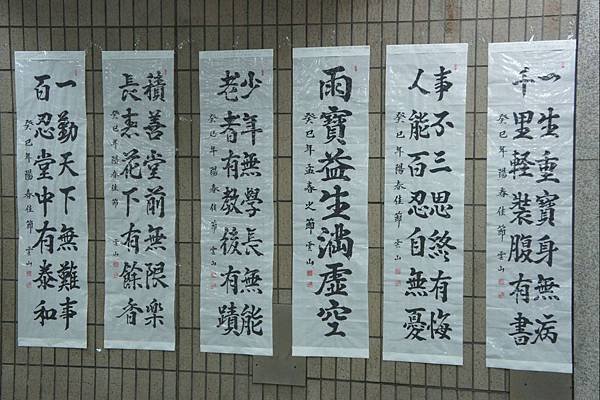 一生重寶身無病
千里軽裝腹有書
癸巳年陽春佳節 雲山
事不三思終有悔
人能百忍自無憂
癸巳年陽春佳節 雲山
雨寶益生滿虛空
癸巳年孟春之節 雲山
少年無學長無能
老者有教後有蹟
癸巳年陽春佳節 雲山
積善堂前無限樂
長春花下有餘香
癸巳年陽春佳節 雲山
一勤天下無難事
百忍堂中有泰和
癸巳年陽春佳節 雲山